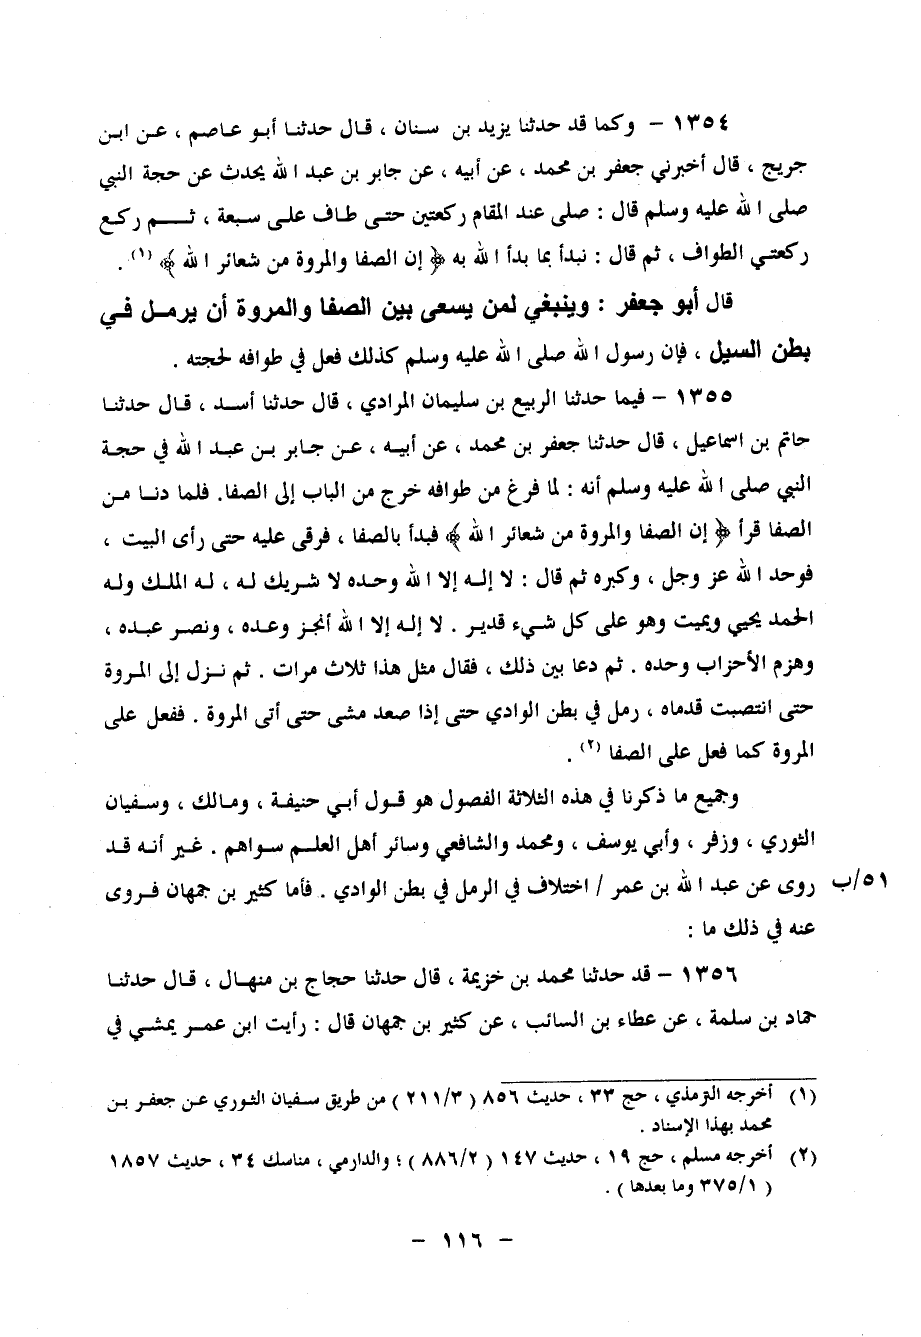 ١٣٥٤ – وكما قد حدثنا يزيد بن سنان ، قال حدثنا أبو عاصم ، عن ابن
جريج ، قال أخبرني جعفر بن محمد ، عن أبيه ، عن جابر بن عبد الله يحدث عن حجة النبي
صلى الله عليه وسلم قال : صلى عند المقام ركعتين حتى طاف على سبعة ، ثم ركع
ركعتي الطواف ، ثم قال : نبدأ بما بدأ الله به ﴿ إن الصفا والمروة من شعائر الله ﴾ (١) .
قال أبو جعفر : وينبغي لمن يسعى بين الصفا والمروة أن يرمل في
بطن السيل ، فإن رسول الله صلى الله عليه وسلم كذلك فعل في طوافه لحجته .
١٣٥٥ – فيما حدثنا الربيع بن سليمان المرادي ، قال حدثنا أسد ، قال حدثنا
حاتم بن اسماعيل ، قال حدثنا جعفر بن محمد ، عن أبيه ، عن جابر بن عبد الله في حجة
النبي صلى الله عليه وسلم أنه : لما فرغ من طوافه خرج من الباب إلى الصفا. فلما دنا من
الصفا قرأ ﴿ إن الصفا والمروة من شعائر الله ﴾ فبدأ بالصفا ، فرقى عليه حتى رأى البيت ،
فوحد الله عز وجل ، وكبره ثم قال : لا إله إلا الله وحده لا شريك له ، له الملك وله
الحمد يحيي ويميت وهو على كل شيء قدير . لا إله إلا الله أنجز وعده ، ونصر عبده ،
وهزم الأحزاب وحده . ثم دعا بين ذلك ، فقال مثل هذا ثلاث مرات . ثم نزل إلى المروة
حتى انتصبت قدماه ، رمل في بطن الوادي حتى إذا صعد مشى حتى أتى المروة . ففعل على
المروة كما فعل على الصفا (٢) .
وجميع ما ذكرنا في هذه الثلاثة الفصول هو قول أبي حنيفة ، ومالك ، وسفيان
الثوري ، وزفر ، وأبي يوسف ، ومحمد والشافعي وسائر أهل العلم سواهم . غير أنه قد
روى عن عبد الله بن عمر / اختلاف في الرمل في بطن الوادي . فأما كثير بن جمهان فروى ٥١/ب
عنه في ذلك ما :
١٣٥٦ – قد حدثنا محمد بن خزيمة ، قال حدثنا حجاج بن منهال ، قال حدثنا
حماد بن سلمة ، عن عطاء بن السائب ، عن كثير بن جمهان قال : رأيت ابن عمر يمشي في
(١) أخرجه الترمذي ، حج ٣٣ ، حديث ٨٥٦ ( ٢١١/٣ ) من طريق سفيان الثوري عن جعفر بن
محمد بهذا الإسناد .
(٢) أخرجه مسلم ، حج ١٩ ، حديث ١٤٧ ( ٨٨٦/٢ ) ؛ والدارمي ، مناسك ٣٤ ، حديث ١٨٥٧
( ٣٧٥/١ وما بعدها ) .
– ١١٦ –